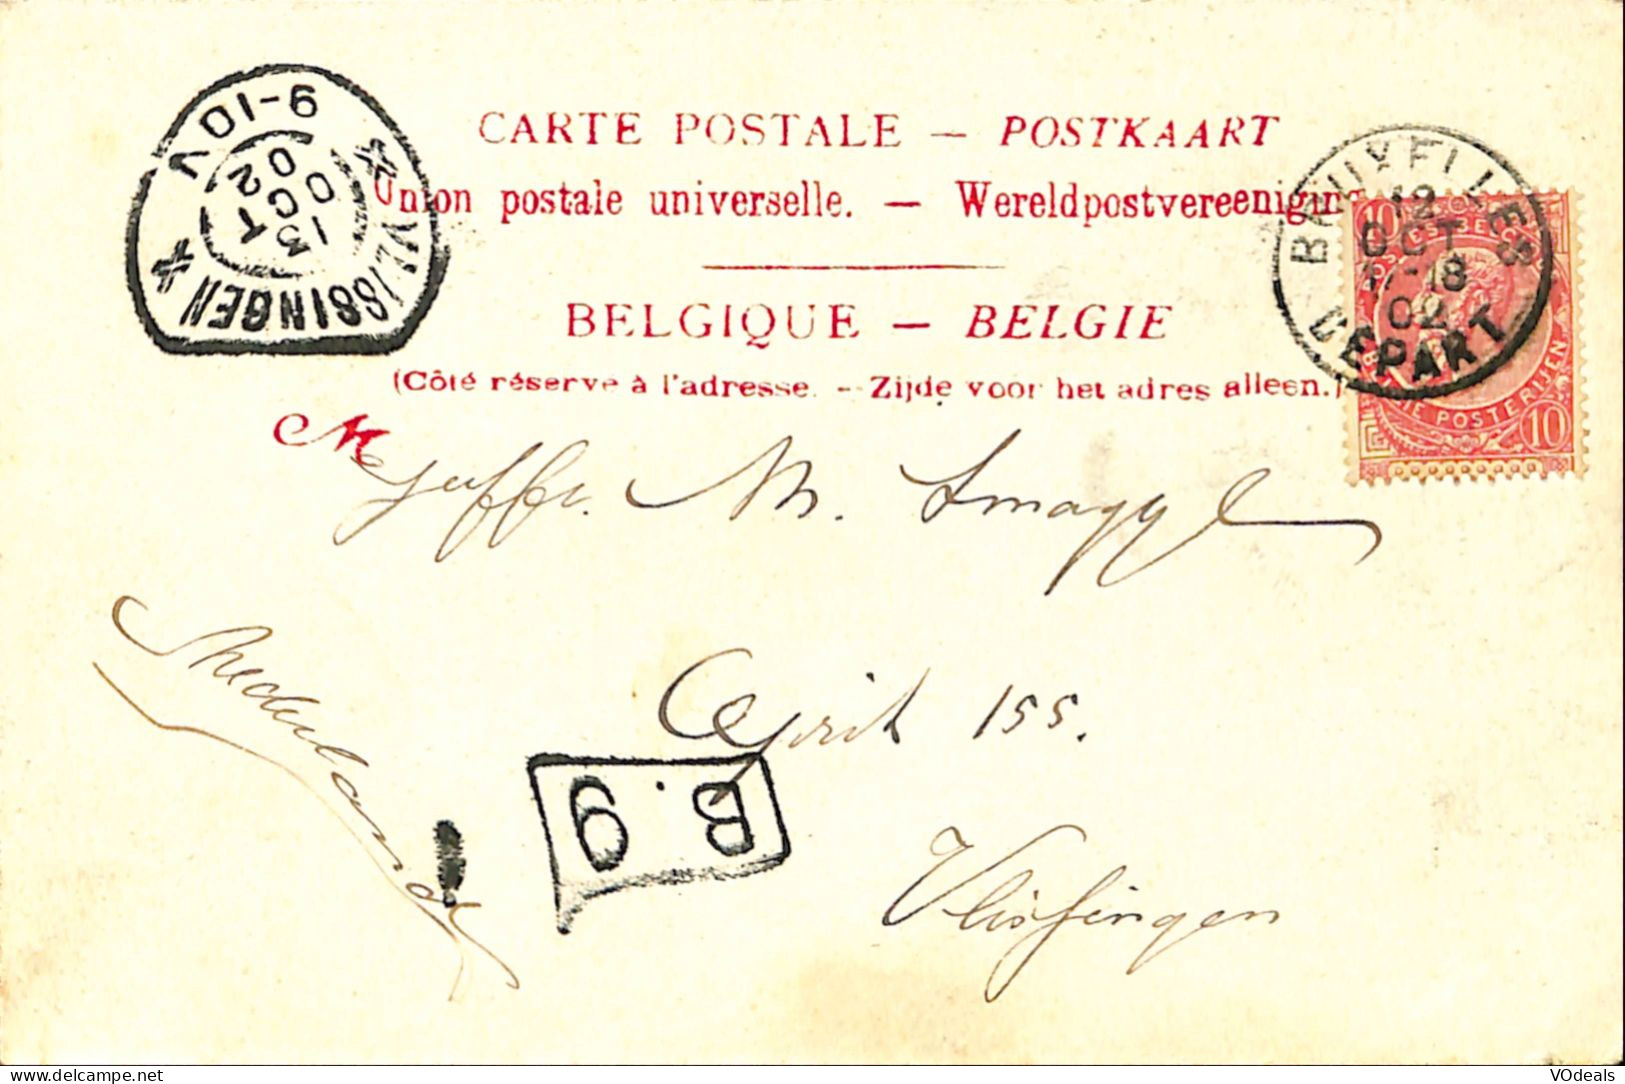 CARTE POSTALE — POSTKAART
Union postale universelle. — Wereldpostvereeniging
BELGIQUE — BELGIE
(Côté réservé à l'adresse. — Zijde voor het adres alleen.)
VLISSINGEN
13 OCT 02
9-10 V
BRUXELLES
12
OCT
17-18
02
DEPART
10
POSTERIJEN 10
Mejuffr. M. Smagge
155.
Vlissingen
Nederland
B. 9
VDeals